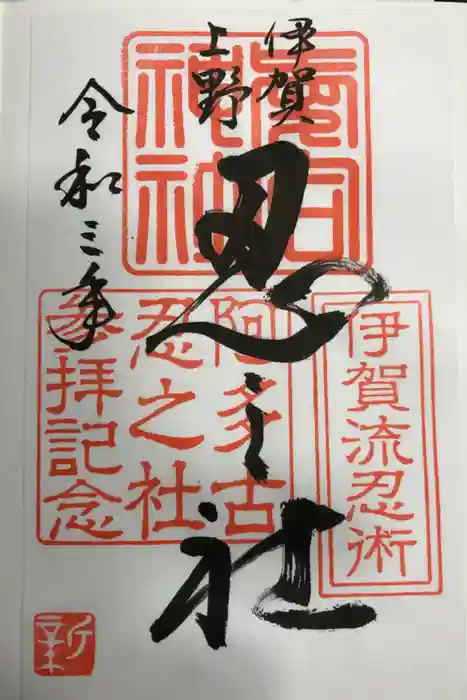 伊賀
上野
愛宕
神社
忍之社
令和三年
伊賀流忍術
阿多古
忍之社
參拝記念
新